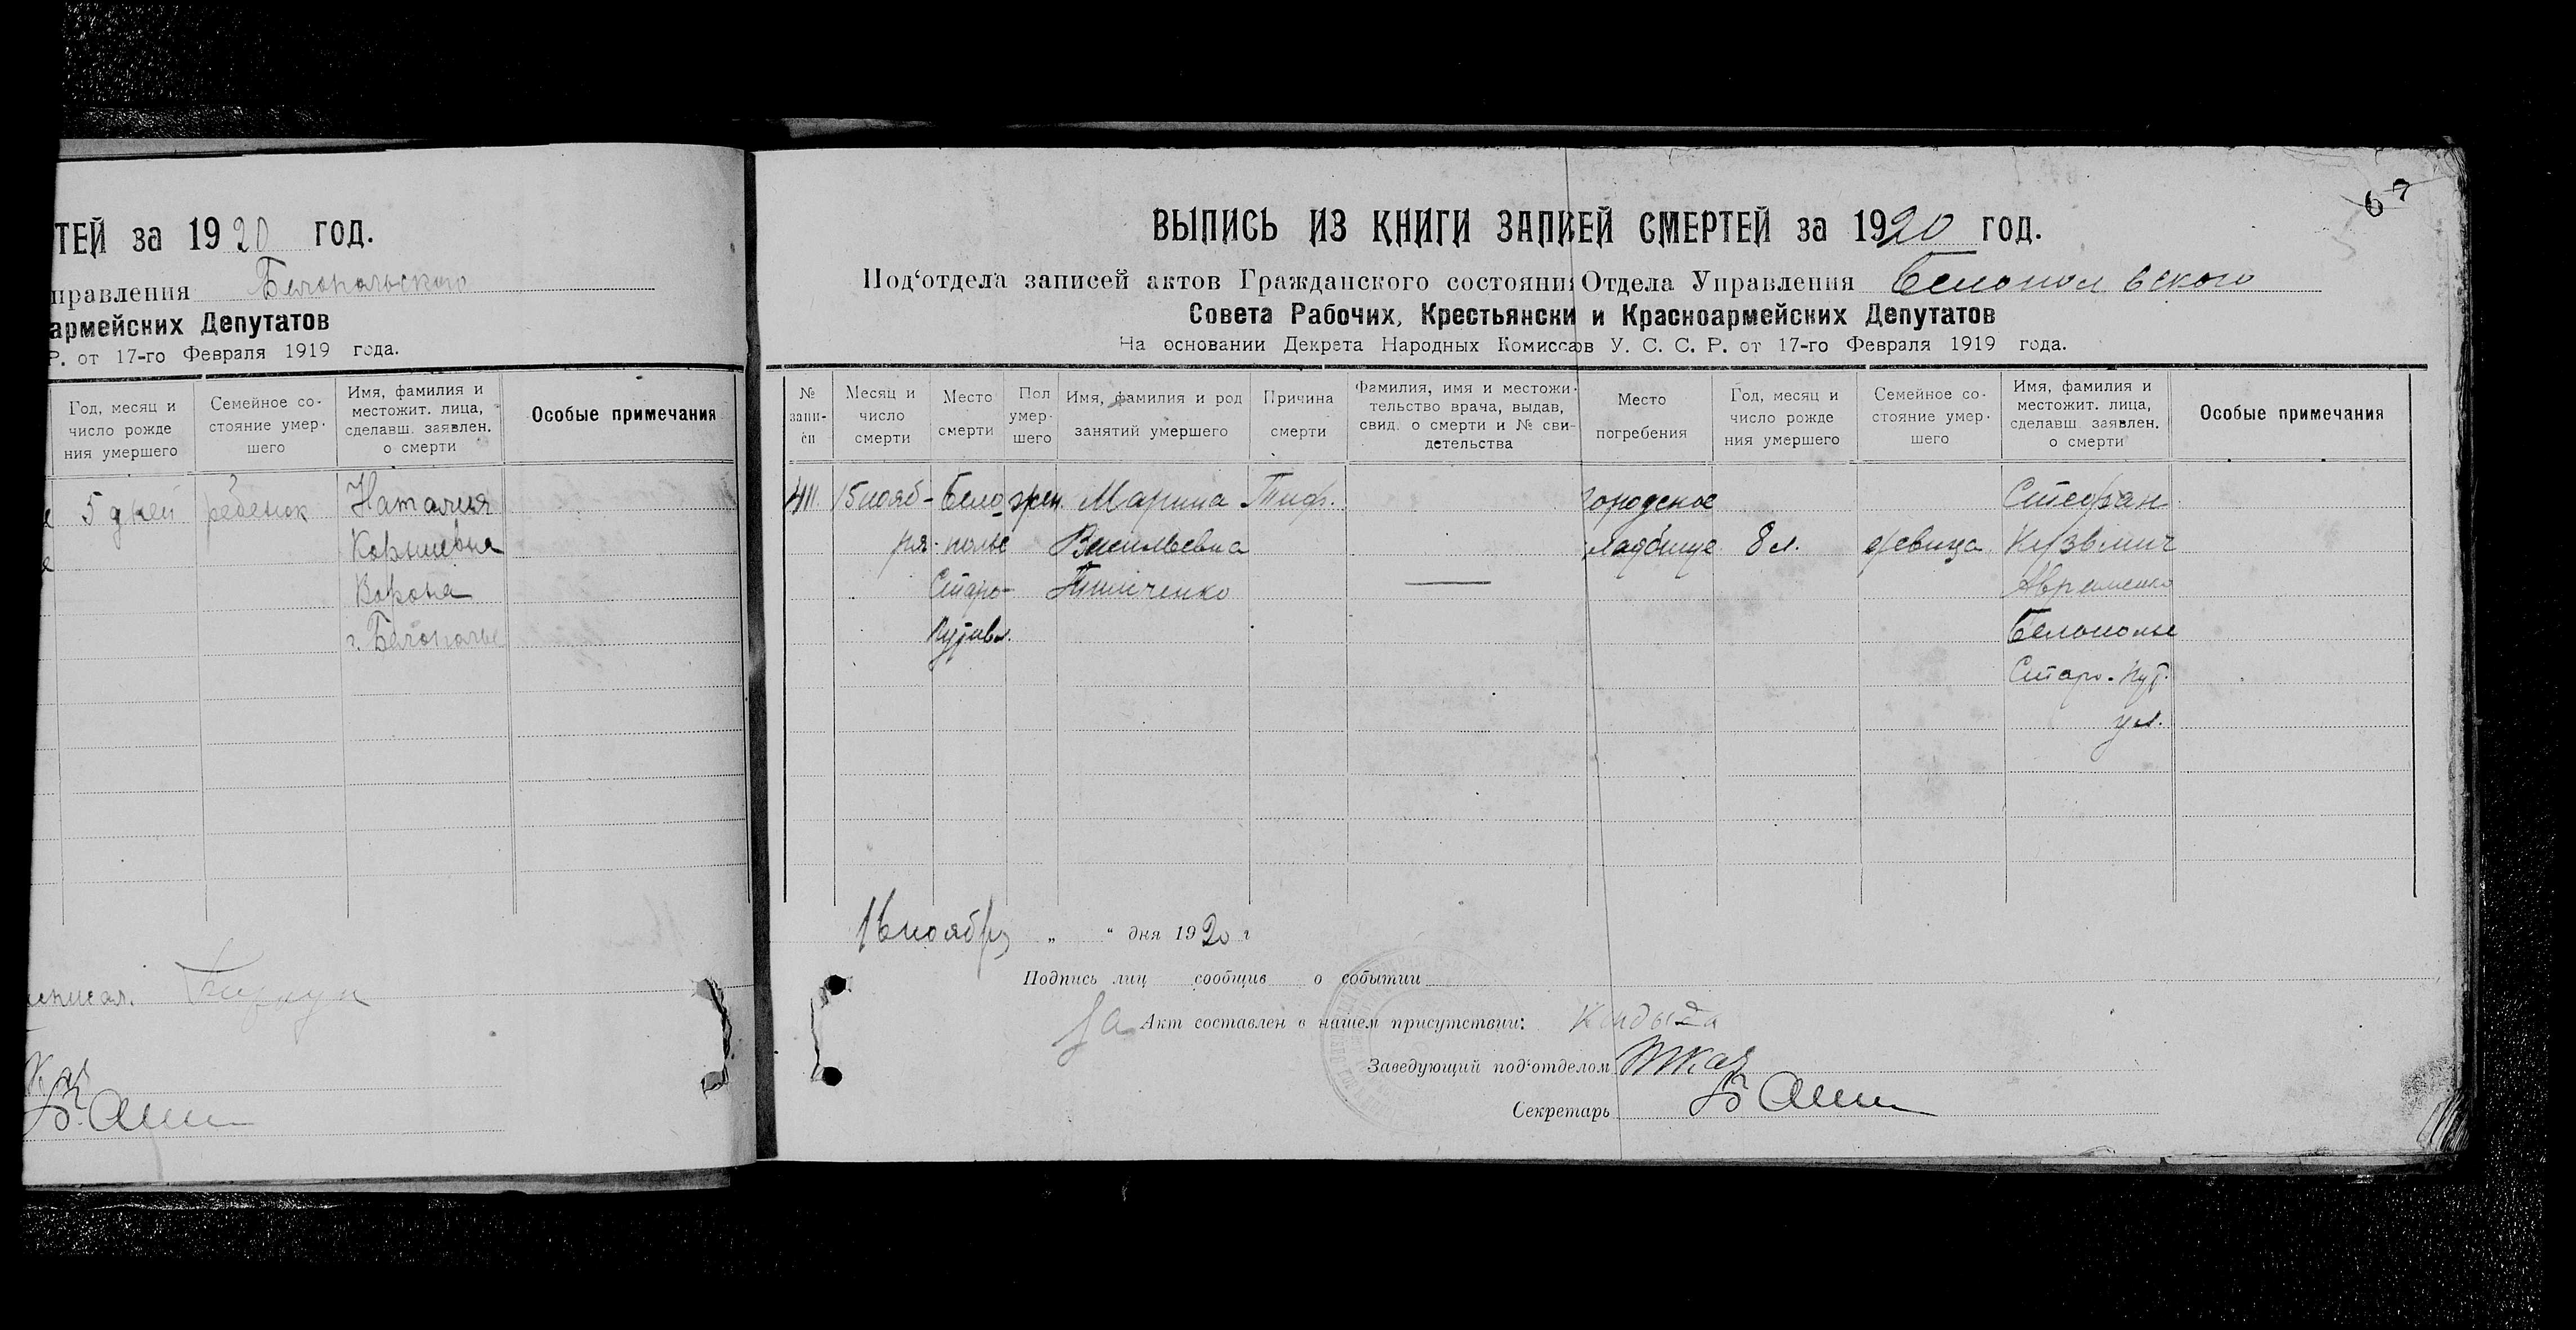 ТЕЙ за 1920 ГОД.
правления Белопольского
армейских Депутатов
Р. от 17-го Февраля 1919 года.
Год, месяц и
число рожде
ния умершего
Семейное со-
стояние умер-
шего
Имя, фамилия и
местожит. лица,
сделавш. заявлен.
о смерти
Особые примечания
5 дней ребенок Наталия
Ворона
г. Белополье
67
ВЫПИСЬ ИЗ КНИГИ ЗАПИСЕЙ СМЕРТЕЙ за 1920 год.
Под‘отдела записей актов Гражданского состояния Отдела Управления Белопольского
Совета Рабочих, Крестьянски и Красноармейских Депутатов
На основании Декрета Народных Комиссаров У. С. С. Р. от 17-го Февраля 1919 года.
№
запи-
си
Месяц и
число
смерти
Место
смерти
Пол
умер-
шего
Имя, фамилия и род
занятий умершего
Причина
смерти
Фамилия, имя и местожи-
тельство врача, выдав,
свид. о смерти и № сви-
детельства
Место
погребения
Год, месяц и
число рожде
ния умершего
Семейное со-
стояние умер-
шего
Имя, фамилия и
местожит. лица,
сделавш. заявлен.
о смерти
Особые примечания
411. 15 нояб- Бело- жен. Марина Тиф. городское Стефан
ря. полье Васильевна кладбище 8 л. девица Кузьмич
Старо- Авраменко
Путивл. Белополье
Старо. Пут.
ул.
16 ноября „ “ дня 1920 г
Подпись лиц сообщив о событии
За Акт составлен в нашем присутствии:
Заведующий под‘отделом Ткач
Секретарь